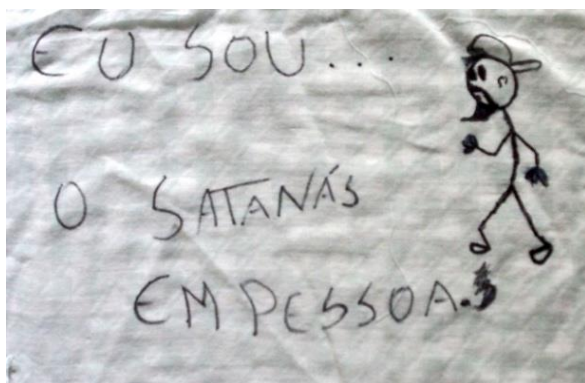 EU SOU...
O SATANÁS
EM PESSOA.